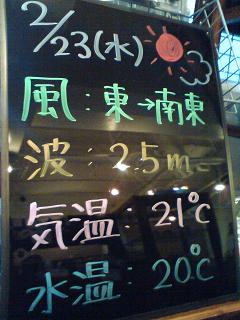 2/23(水)
風:東→南東
波:2.5m
気温:21℃
水温:20℃